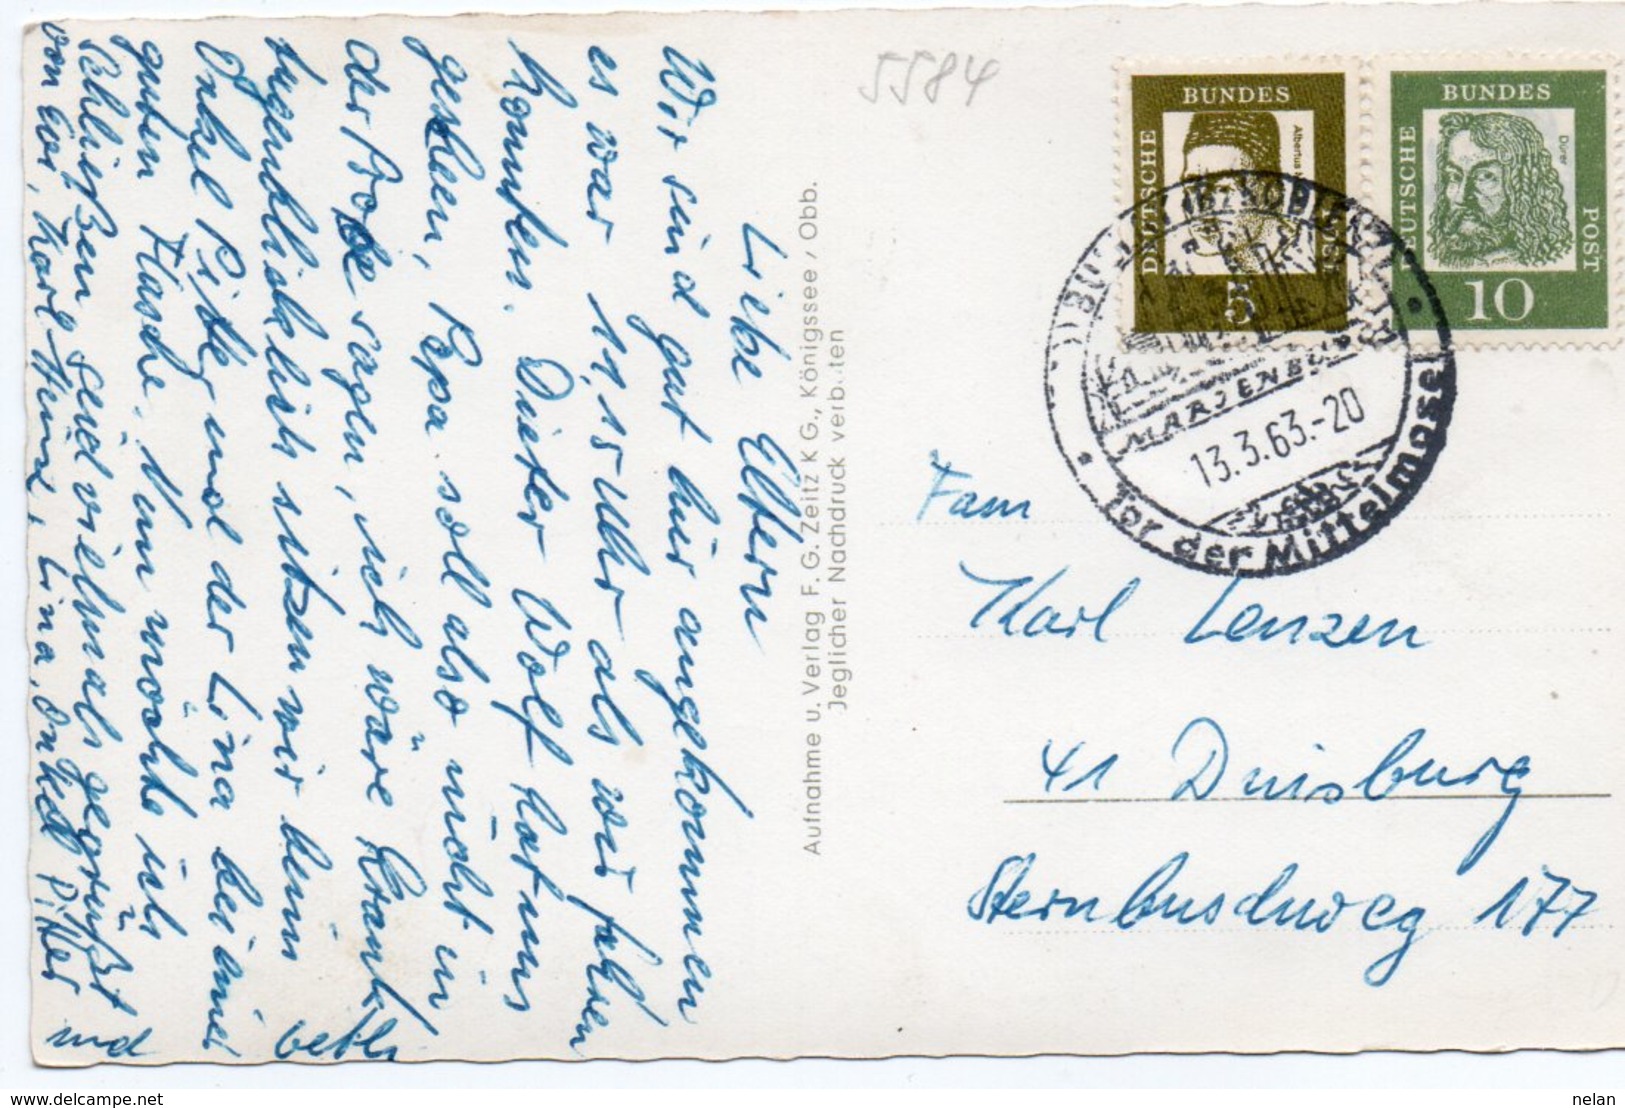 Liebe Eltern
Wir sind gut hier angekommen
es war 11,15 Uhr als wir fahren
konnten. Dieter Wolf hat uns
gesehen, Papa soll also nicht in
der Bode sagen, ich wäre krank
Augenblicklich sitzen wir beim
Onkel Pitter und der Lina bei einer
guten Flasche. Nun möchte ich
schließen seid vielmals gegrüßt
von Eur. Karl Heinz, Lina, Onkel Pitter
und
Aufnahme u. Verlag F. G. Zeitz K G., Königssee / Obb.
Jeglicher Nachdruck verboten
5584
DEUTSCHE BUNDES
Albertus
5
DEUTSCHE BUNDES POST
Dürer
10
MARIENBURG
13.3.63.-20
Tor der Mittelmosel
Fam
Karl Lenzen
41 Duisburg
Sternbuschweg 177
nelan